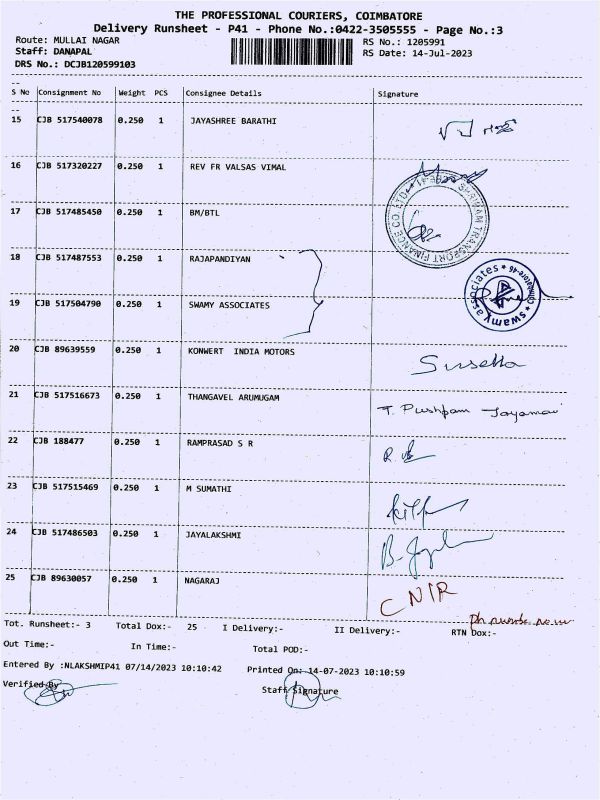 THE PROFESSIONAL COURIERS, COIMBATORE
Delivery Runsheet - P41 - Phone No.:0422-3505555 - Page No.:3
Route: MULLAI NAGAR RS No.: 1205991
Staff: DANAPAL RS Date: 14-Jul-2023
DRS No.: DCJB120599103
S No Consignment No Weight PCS Consignee Details Signature
15 CJB 517540078 0.250 1 JAYASHREE BARATHI
16 CJB 517320227 0.250 1 REV FR VALSAS VIMAL
17 CJB 517485450 0.250 1 BM/BTL
SHRIRAM TRANSPORT FINANCE CO. LTD
18 CJB 517487553 0.250 1 RAJAPANDIYAN
19 CJB 517504790 0.250 1 SWAMY ASSOCIATES
swamy associates * Coimbatore-46 *
20 CJB 89639559 0.250 1 KONWERT INDIA MOTORS
21 CJB 517516673 0.250 1 THANGAVEL ARUMUGAM T. Pushpam
22 CJB 188477 0.250 1 RAMPRASAD S R
23 CJB 517515469 0.250 1 M SUMATHI
24 CJB 517486503 0.250 1 JAYALAKSHMI
25 CJB 89630057 0.250 1 NAGARAJ CNIR
Tot. Runsheet:- 3 Total Dox:- 25 I Delivery:- II Delivery:- RTN Dox:-
Out Time:- In Time:- Total POD:-
Entered By :NLAKSHMIP41 07/14/2023 10:10:42 Printed On: 14-07-2023 10:10:59
Verified By Staff Signature